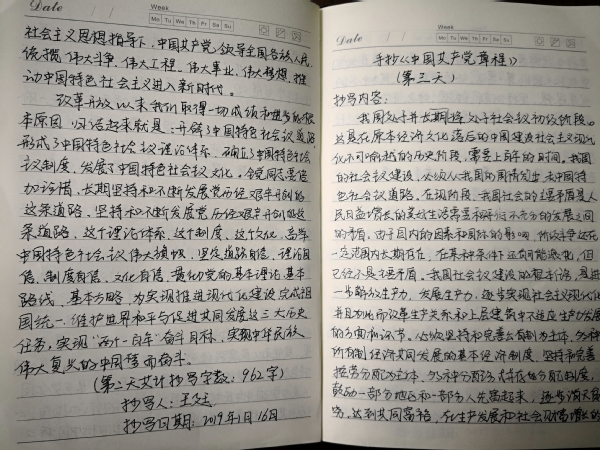 Date
Week
Mo Tu We Th Fr Sa Su
社会主义思想指导下,中国共产党领导全国各族人民,
统揽伟大斗争、伟大工程、伟大事业、伟大梦想,推
动中国特色社会主义进入新时代。
改革开放以来我们取得一切成绩和进步的根
本原因,归结起来就是:开辟了中国特色社会主义道路,
形成了中国特色社会主义理论体系,确立了中国特色社会主
义制度,发展了中国特色社会主义文化。全党同志要倍
加珍惜、长期坚持和不断发展党历经艰辛开创的
这条道路、坚持和不断发展党历经艰辛开创的这
条道路、这个理论体系、这个制度、这个文化,高举
中国特色社会主义伟大旗帜,坚定道路自信、理论自
信、制度自信、文化自信,贯彻党的基本理论、基本
路线、基本方略,为实现推进现代化建设、完成祖
国统一、维护世界和平与促进共同发展这三大历史
任务,实现“两个一百年”奋斗目标、实现中华民族
伟大复兴的中国梦而奋斗。
(第二天共计抄写字数:962字)
抄写人:王
抄写日期:2019年1月16日
Date
Week
Mo Tu We Th Fr Sa Su
手抄《中国共产党章程》
(第三天)
抄写内容:
我国处于并长期处于社会主义初级阶段。
这是在原本经济文化落后的中国建设社会主义现代
化不可逾越的历史阶段,需要上百年的时间。我国
的社会主义建设,必须从我国的国情出发,走中国特
色社会主义道路。在现阶段,我国社会的主要矛盾是人
民日益增长的美好生活需要和不平衡不充分的发展之间
的矛盾。由于国内的因素和国际的影响,阶级斗争还在
一定范围内长期存在,在某种条件下还有可能激化,但
已经不是主要矛盾。我国社会主义建设的根本任务,是进
一步解放生产力,发展生产力,逐步实现社会主义现代化,
并且为此而改革生产关系和上层建筑中不适应生产力发展
的方面和环节。必须坚持和完善公有制为主体、多种
所有制经济共同发展的基本经济制度,坚持和完善
按劳分配为主体、多种分配方式并存的分配制度,
鼓励一部分地区和一部分人先富起来,逐步消灭贫
穷,达到共同富裕,在生产发展和社会财富增长的